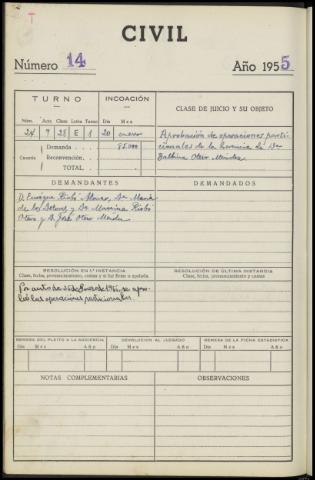 T
CIVIL
Número 14 Año 1955
TURNO INCOACIÓN CLASE DE JUICIO Y SU OBJETO
Núm. Acta Clase Letra Turno Día Mes
24 9 28 E 1 20 enero
Aprobación de operaciones parti-
cionales de la herencia de Dª
Balbina Otero Méndez
Cuantía Demanda 85.000
Reconvención
TOTAL
DEMANDANTES DEMANDADOS
D. Enrique Otero, Dª María
de los Dolores y Dª
Otero y D. José Otero Méndez
RESOLUCIÓN EN 1.ª INSTANCIA RESOLUCIÓN DE ÚLTIMA INSTANCIA
Clase, fecha, pronunciamiento, costas y si fué firme o apelada. Clase, fecha, pronunciamiento, costas.
Por auto de de Enero de se apro-
bó las operaciones particionales.
REMESA DEL PLEITO A LA AUDIENCIA DEVOLUCION AL JUZGADO REMESA DE LA FICHA ESTADISTICA
Día Mes Año Día Mes Año Día Mes Año
NOTAS COMPLEMENTARIAS OBSERVACIONES